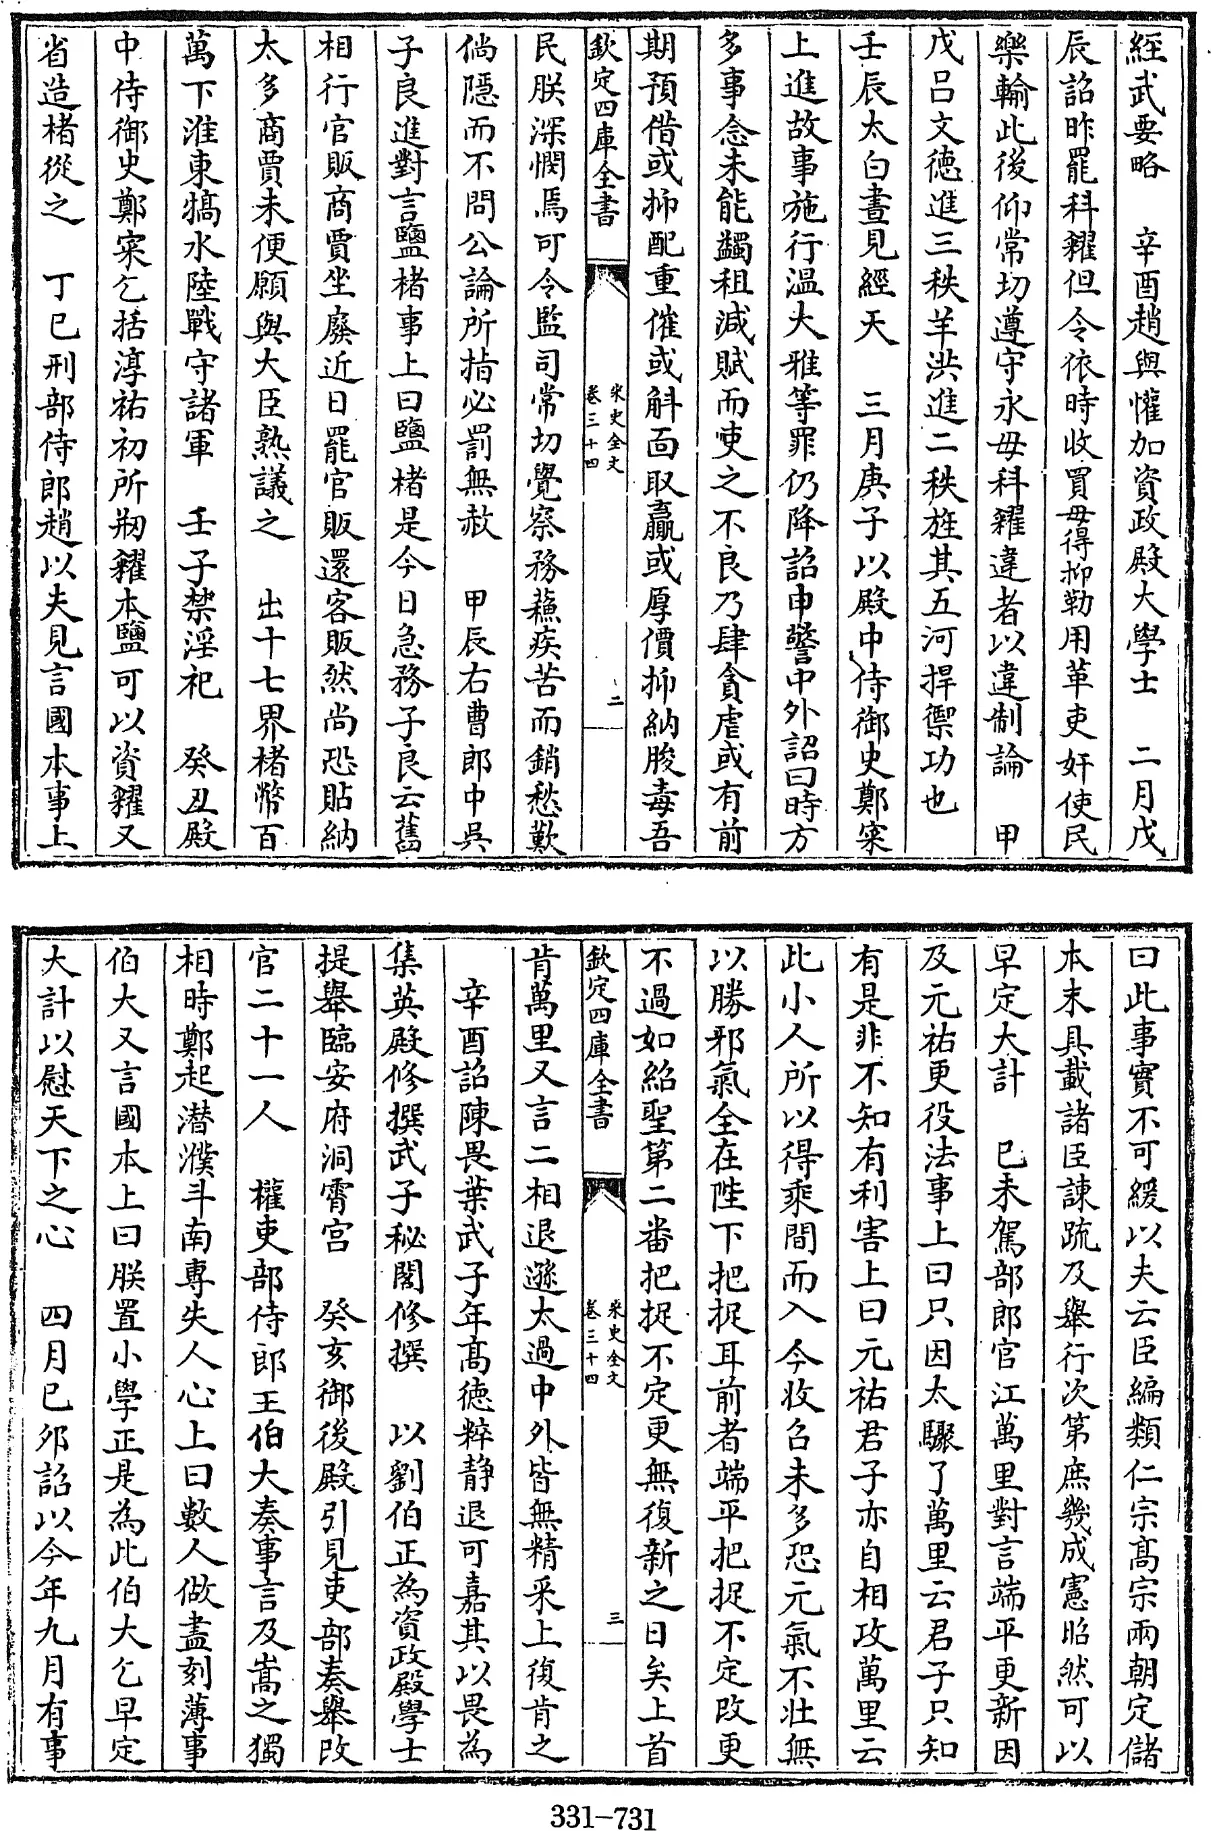 經武要略　辛酉趙與懽加資政殿大學士　二月戊
辰詔昨罷科糴但令依時收買毋得抑勒用革吏奸使民
樂輸此後仰常切遵守永毋科糴違者以違制論　甲
戌呂文德進三秩羊洪進二秩旌其五河捍禦功也
壬辰太白晝見經天　三月庚子以殿中侍御史鄭寀
上進故事施行溫大雅等罪仍降詔申警中外詔曰時方
多事念未能蠲租減賦而吏之不良乃肆貪虐或有前
期預借或抑配重催或斛面取贏或厚價抑納朘毒吾
欽定四庫全書
宋史全文
卷三十四
二
民朕深憫焉可令監司常切覺察務蘓疾苦而銷愁歎
倘隱而不問公論所指必罰無赦　甲辰右曹郎中吳
子良進對言鹽楮事上曰鹽楮是今日急務子良云舊
相行官販商賈坐廢近日罷官販還客販然尚恐貼納
太多商賈未便願與大臣熟議之　出十七界楮幣百
萬下淮東犒水陸戰守諸軍　壬子禁淫祀　癸丑殿
中侍御史鄭寀乞括淳祐初所刱糴本鹽可以資糴又
省造楮從之　丁巳刑部侍郎趙以夫見言國本事上
曰此事實不可緩以夫云臣編類仁宗高宗兩朝定儲
本末具載諸臣諫疏及舉行次第庶幾成憲昭然可以
早定大計　己未駕部郎官江萬里對言端平更新因
及元祐更役法事上曰只因太驟了萬里云君子只知
有是非不知有利害上曰元祐君子亦自相攻萬里云
此小人所以得乘間而入今收召未多恐元氣不壯無
以勝邪氣全在陛下把捉耳前者端平把捉不定改更
不過如紹聖第二番把捉不定更無復新之日矣上首
欽定四庫全書
宋史全文
卷三十四
三
肯萬里又言二相退遜太過中外皆無精采上復肯之
辛酉詔陳畏葉武子年高德粹靜退可嘉其以畏為
集英殿修撰武子秘閣修撰　以劉伯正為資政殿學士
提舉臨安府洞霄宮　癸亥御後殿引見吏部奏舉改
官二十一人　權吏部侍郎王伯大奏事言及嵩之獨
相時鄭起潛濮斗南專失人心上曰數人做盡刻薄事
伯大又言國本上曰朕置小學正是為此伯大乞早定
大計以慰天下之心　四月己夘詔以今年九月有事
331-731